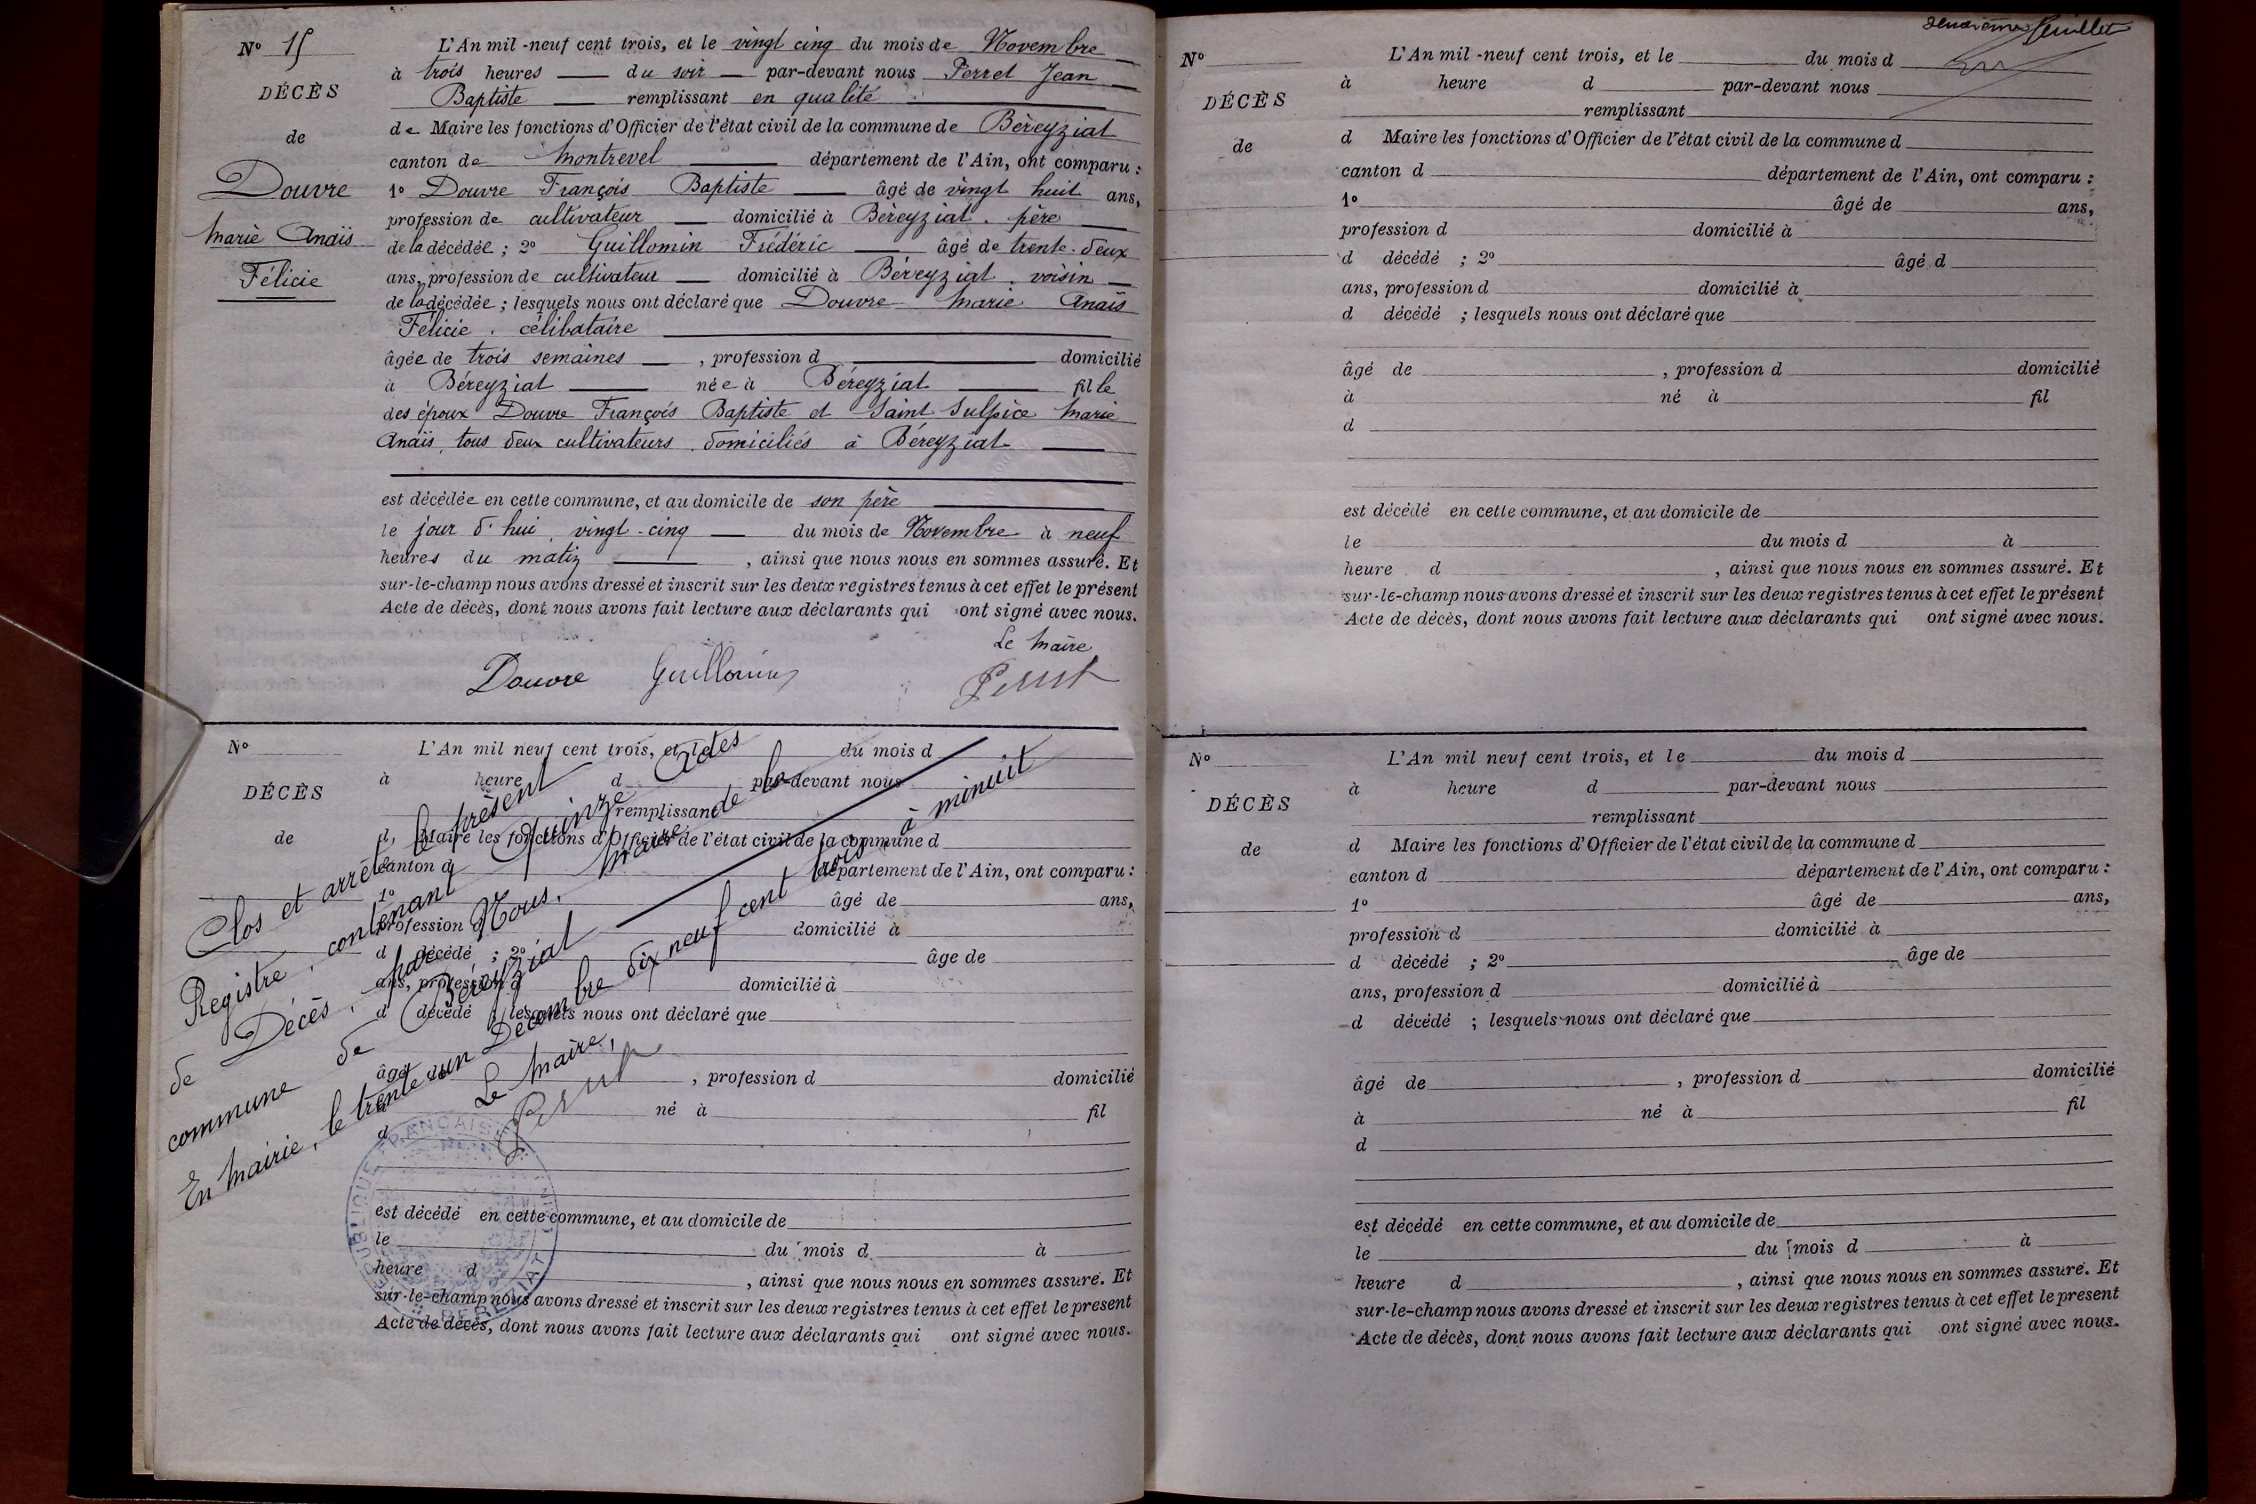 N° 15
DÉCÈS
de
Douvre
Marie Anaïs
Félicie
L'An mil-neuf cent trois, et le vingt cinq du mois de Novembre
à trois heures du soir par-devant nous Perret Jean
Baptiste remplissant en qualité
de Maire les fonctions d'Officier de l'état civil de la commune de Béreyziat
canton de Montrevel département de l'Ain, ont comparu :
1° Douvre François Baptiste âgé de vingt huit ans,
profession de cultivateur domicilié à Béreyziat. père
de la décédée ; 2° Guillomin Frédéric âgé de trente-deux
ans, profession de cultivateur domicilié à Béreyziat, voisin
de la décédée ; lesquels nous ont déclaré que Douvre Marie Anaïs
Félicie, célibataire
âgée de trois semaines , profession d domicilié
à Béreyziat née à Béreyziat fille
des époux Douvre François Baptiste et Saint Sulpice Marie
Anaïs, tous deux cultivateurs, domiciliés à Béreyziat
est décédée en cette commune, et au domicile de son père
le jour d'hui, vingt-cinq du mois de Novembre à neuf
heures du matin , ainsi que nous nous en sommes assuré. Et
sur-le-champ nous avons dressé et inscrit sur les deux registres tenus à cet effet le présent
Acte de décès, dont nous avons fait lecture aux déclarants qui ont signé avec nous.
Le Maire
Douvre Guillomin Perret
N°
DÉCÈS
de
L'An mil neuf cent trois, et le du mois d
à heure d par-devant nous
remplissant
d Maire les fonctions d'Officier de l'état civil de la commune d
canton d département de l'Ain, ont comparu :
1° âgé de ans,
profession d domicilié à
d décédé ; 2° âge de
ans, profession d domicilié à
d décédé ; lesquels nous ont déclaré que
âgé de , profession d domicilié
à né à fil
d
est décédé en cette commune, et au domicile de
le du mois d à
heure d , ainsi que nous nous en sommes assuré. Et
sur-le-champ nous avons dressé et inscrit sur les deux registres tenus à cet effet le present
Acte de décès, dont nous avons fait lecture aux déclarants qui ont signé avec nous.
Clos et arrêté le présent
Registre, contenant Quinze Actes
de Décès, par Nous, Maire de la
commune de Béreyziat
En Mairie, le trente un Décembre dix neuf cent trois à minuit
Le Maire,
Perret
RÉPUBLIQUE FRANÇAISE
BEREYZIAT (AIN)
deuxième feuillet
N°
DÉCÈS
de
L'An mil-neuf cent trois, et le du mois d
à heure d par-devant nous
remplissant
d Maire les fonctions d'Officier de l'état civil de la commune d
canton d département de l'Ain, ont comparu :
1° âgé de ans,
profession d domicilié à
d décédé ; 2° âgé d
ans, profession d domicilié à
d décédé ; lesquels nous ont déclaré que
âgé de , profession d domicilié
à né à fil
d
est décédé en cette commune, et au domicile de
le du mois d à
heure d , ainsi que nous nous en sommes assuré. Et
sur-le-champ nous avons dressé et inscrit sur les deux registres tenus à cet effet le présent
Acte de décès, dont nous avons fait lecture aux déclarants qui ont signé avec nous.
N°
DÉCÈS
de
L'An mil neuf cent trois, et le du mois d
à heure d par-devant nous
remplissant
d Maire les fonctions d'Officier de l'état civil de la commune d
canton d département de l'Ain, ont comparu :
1° âgé de ans,
profession d domicilié à
d décédé ; 2° âge de
ans, profession d domicilié à
d décédé ; lesquels nous ont déclaré que
âgé de , profession d domicilié
à né à fil
d
est décédé en cette commune, et au domicile de
le du mois d à
heure d , ainsi que nous nous en sommes assuré. Et
sur-le-champ nous avons dressé et inscrit sur les deux registres tenus à cet effet le present
Acte de décès, dont nous avons fait lecture aux déclarants qui ont signé avec nous.